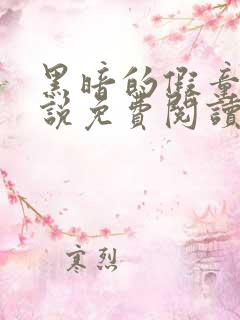 黑暗的假童
說免費閱讀
寒烈